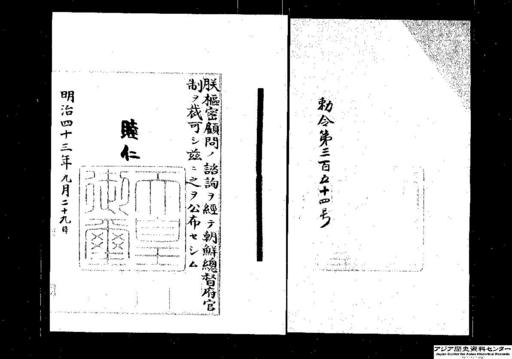 勅令第三百五十四号
朕樞密顧問ノ諮詢ヲ經テ朝鮮總督府官
制ヲ裁可シ茲ニ之ヲ公布セシム
睦仁
天皇
御璽
明治四十三年九月二十九日
アジア歴史資料センター
Japan Center for Asian Historical Records